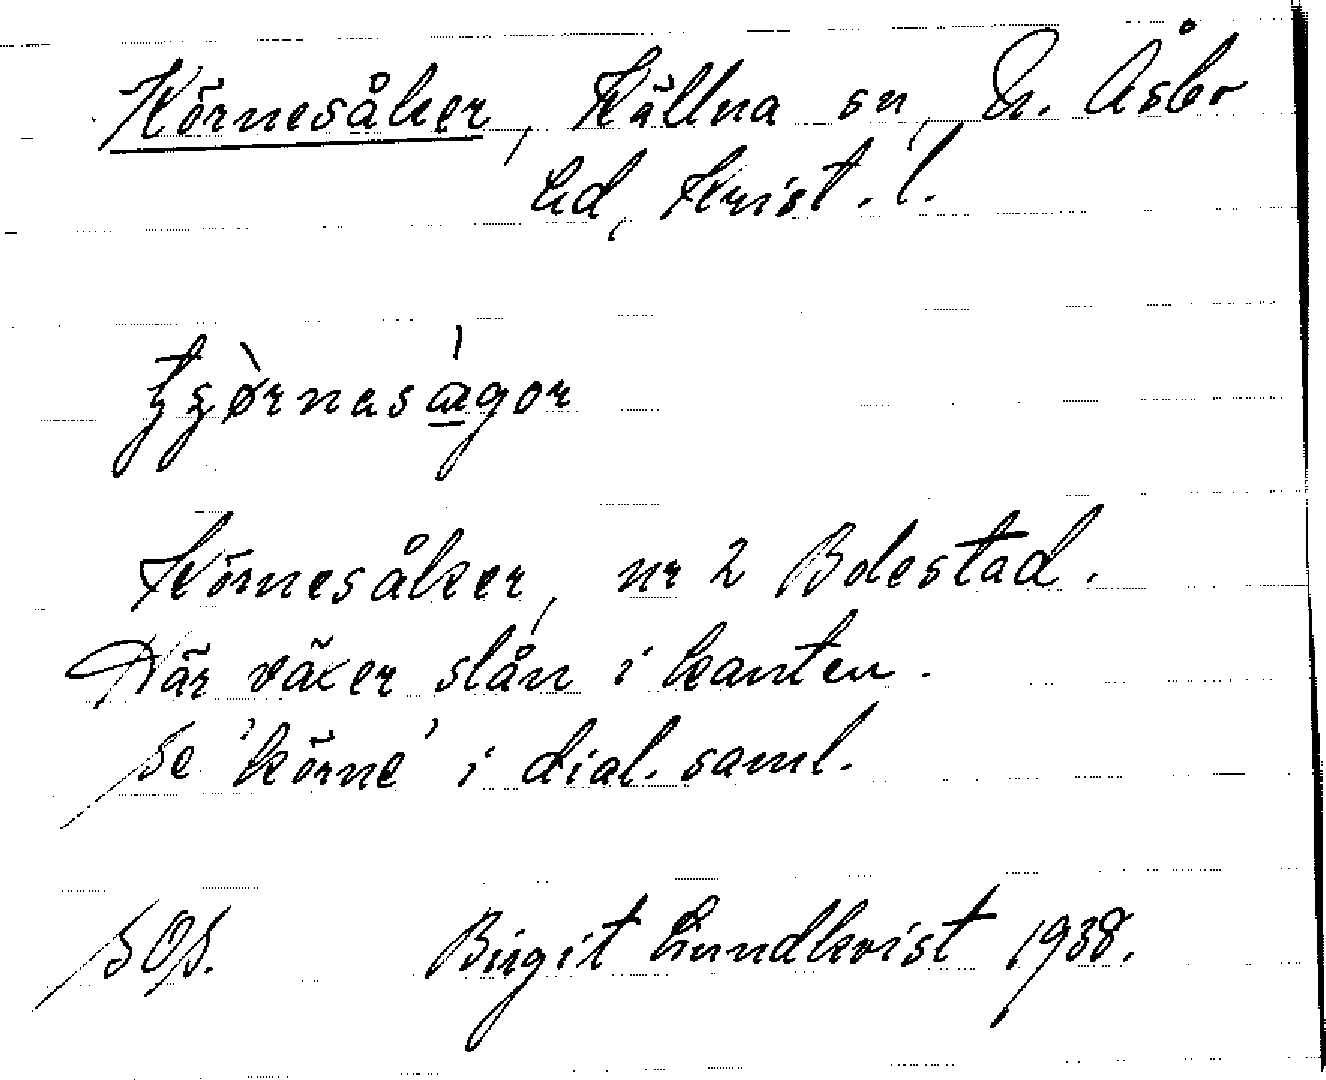 Körnesåker, Källna sn, N. Åsbo
hd, Krist. l.
tʂørnesågor
Körnesåker, nr 2 Bolestad.
Där växer slån i kanten.
Se 'körne' i dial. saml.
SOS. Birgit Lundkvist 1938.